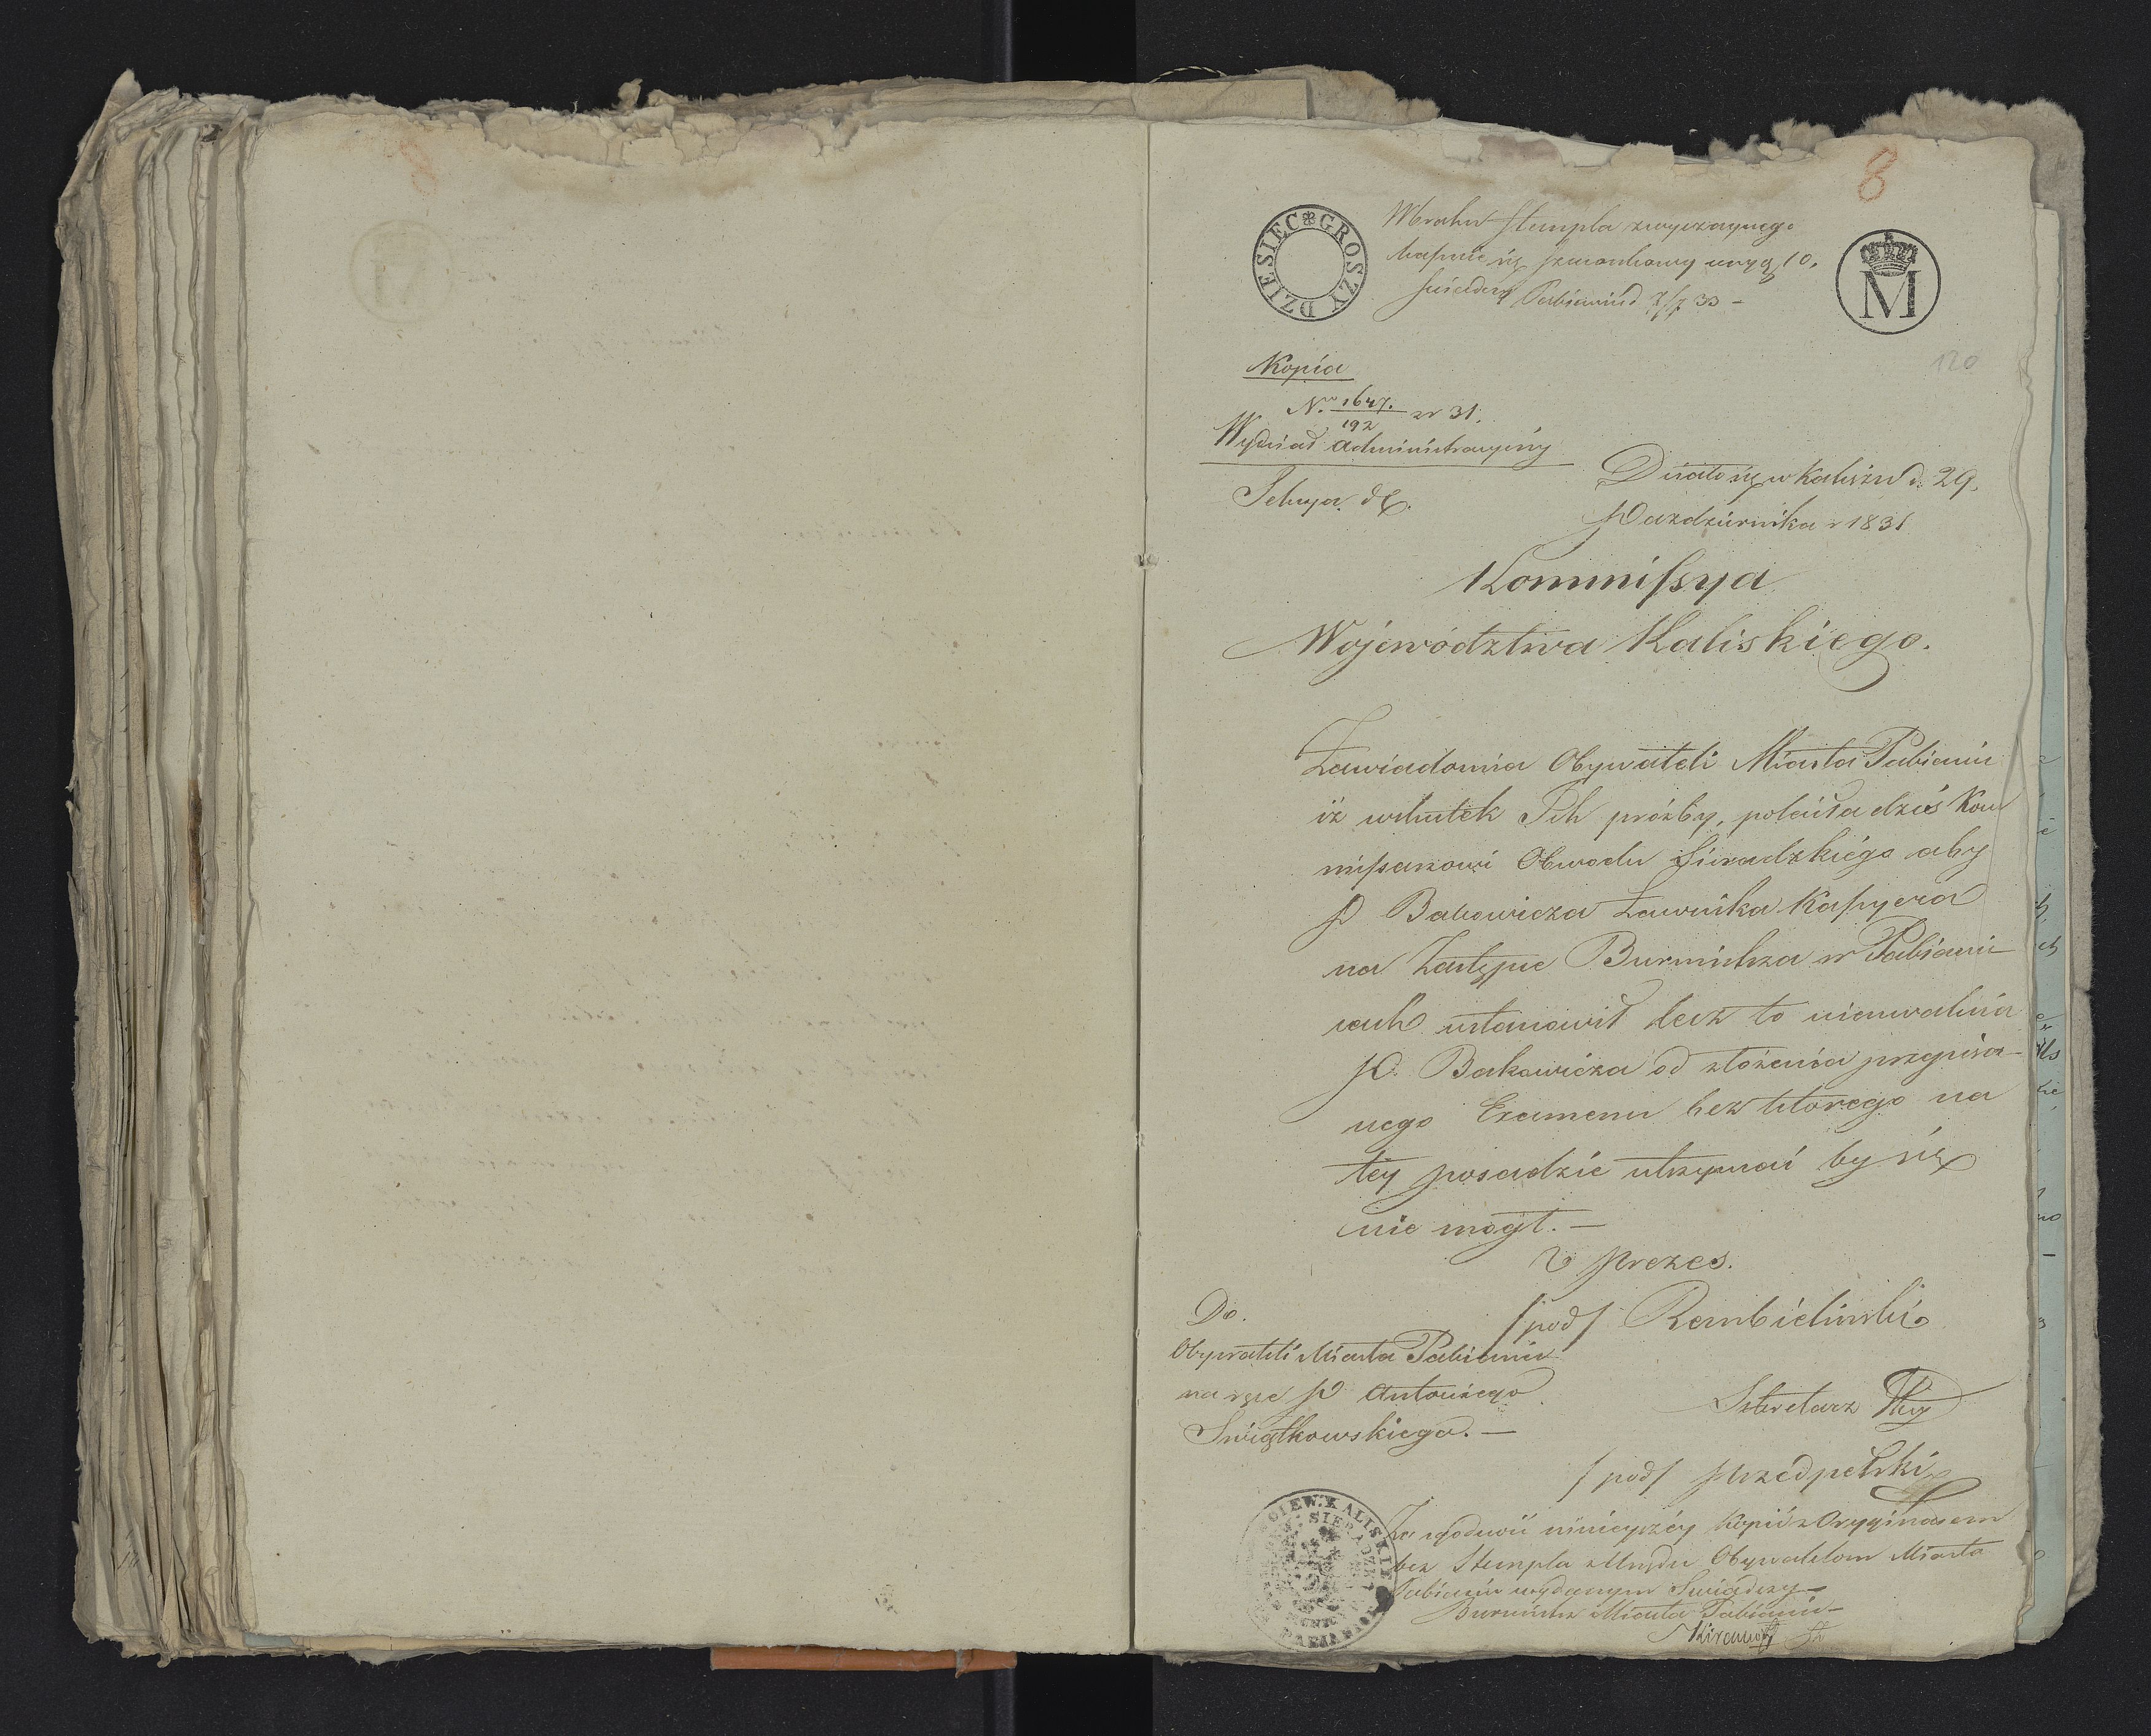 8
8
DZIESIĘC GROSZY
W braku stempla zwyczaynego
kassuie się szacunkowy ceny g 10.
świadczy Pabianice d 7/7 33 –
M
120
Kopia
No 1647./192 w 31.
Wydział Administracyiny
Sekcya
Działo się w Kaliszu d. 29.
Pazdziernika r 1831
Kommissya
Województwa Kaliskiego.
Zawiadomia Obywateli Miasta Pabianic
iż wskutek Ich próźby, poleciła dziś Kom
missarzowi Obwodu Sieradzkiego aby
P Bakowicza Ławnika Kassyera
na Zastępce Burmistrza w Pabiani-
cach ustanowił lecz to nieuwalnia
P. Bakowicza od złożenia przepisa-
nego Examenu bez którego na
tey posadzie utrzymać by się
nie mógł. –
Prezes.
/pod/ Rembieliński
Do.
Obywateli Miasta Pabianic
na ręce P Antoniego
Swiątkowskiego. –
Sekretarz
/pod/ Przedpełski
Za zgodność ninieyszéy Kopii z Oryginałem
bez Stempla z Urzędu Obywatelom Miasta
Pabianic wydanym Swiadczy –
Burmistrz Miasta Pabianic –
WOIEW. KALISKIE